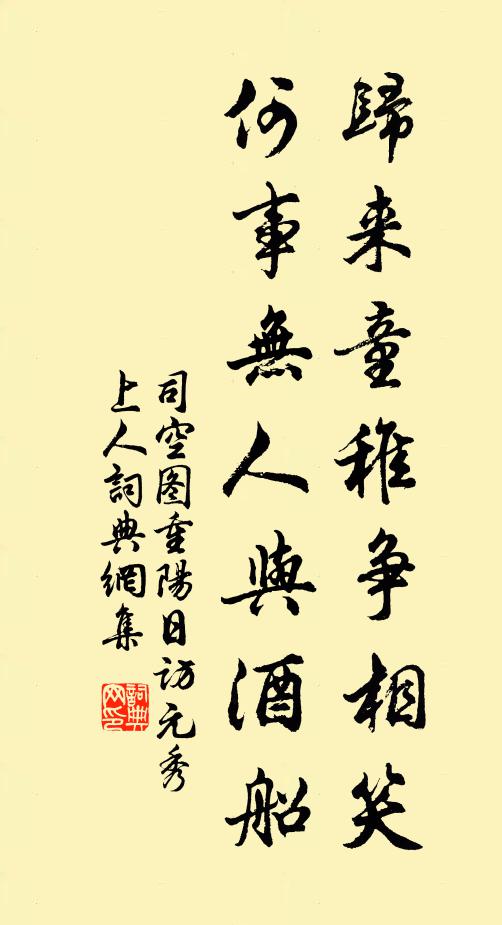 歸来童稚争相笑
何事無人與酒船
司空图重陽日访元秀
上人詞典網集
詞典网印